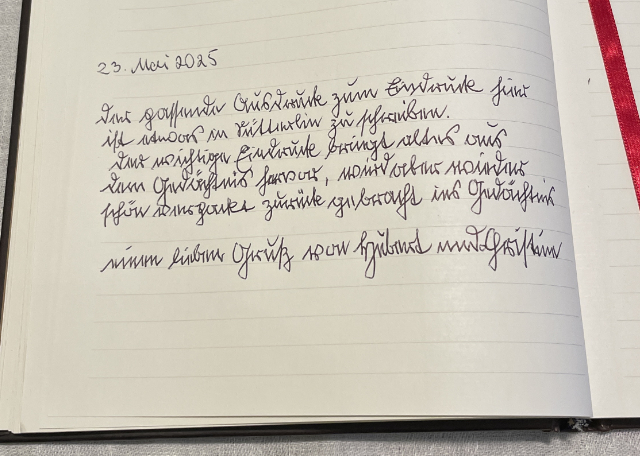 23. Mai 2025
Der passende Ausdruck zum Eindruck hier
ist etwas in Sütterlin zu schreiben.
Der wichtige Eindruck bringt altes aus
dem Gedächtnis hervor, wird aber wieder
schön verpackt zurück gebracht ins Gedächtnis
einen lieben Gruß von Hubert und Christian